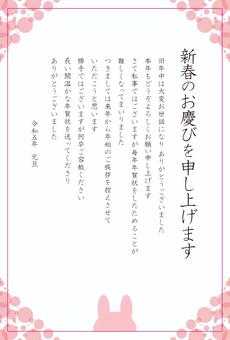 新春のお慶びを申し上げます
旧年中は大変お世話になり ありがとうございました
本年もどうぞよろしくお願い申し上げます
さて私事ではございますが毎年年賀状をしたためることが
難しくなってまいりました
つきましては来年から年始のご挨拶を控えさせて
いただこうと思います
勝手ではございますが何卒ご容赦ください
長い間温かな年賀状を送ってくださり
ありがとうございました
令和五年 元旦